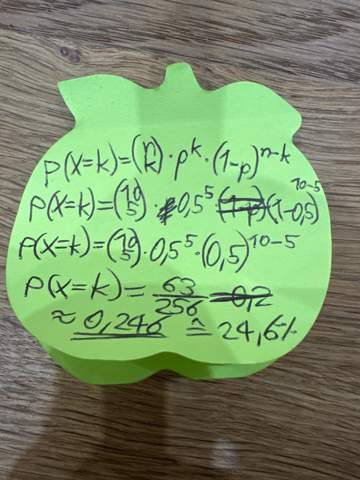 P(X=k)=(n k)·p^k·(1-p)^n-k
P(X=k)=(10 5)·0,5^5 (1-p)(1-0,5)^10-5
P(X=k)=(10 5)·0,5^5·(0,5)^10-5
P(X=k)=63/256=0,2
≈0,246≙24,6%